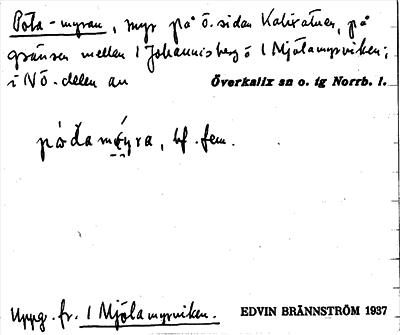 Pöta-myran, myr på ö. sidan Kalixälven, på
gränsen mellan 1 Johannisberg o 1 Mjölamyrviken;
i NÖ. delen av Överkalix sn o. tg Norrb. l.
bf. fem.
Uppg. fr. 1 Mjölamyrviken.
EDVIN BRÄNNSTRÖM 1937